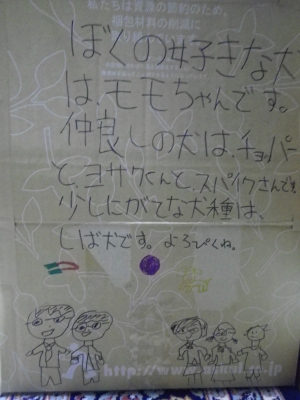 私たちは資源の節約のため、
梱包材料の削減に
ぼくの好きな犬
は、モモちゃんです。
仲良しの犬は、チョッパー
と、ヨサクくんと、スパイクさんです。
少しにがてな犬種は、
しば犬です。よろぴくね。
http://www.